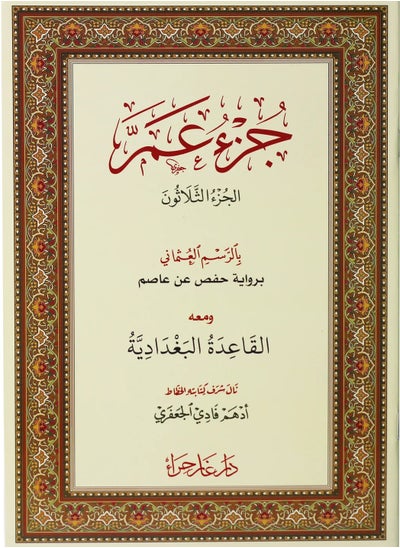 جُزْءُ عَمَّ
الجُزءُ الثَّلَاثُونَ
بِالرَّسْمِ العُثْمَانِي
برواية حفص عن عاصم
ومعه
القَاعِدَةُ البَغْدَادِيَّةُ
نَالَ شَرَفَ كِتَابَتِهِ الخَطَّاط
أدْهَم فَادِي الجَعْفَرِي
دار غار حراء